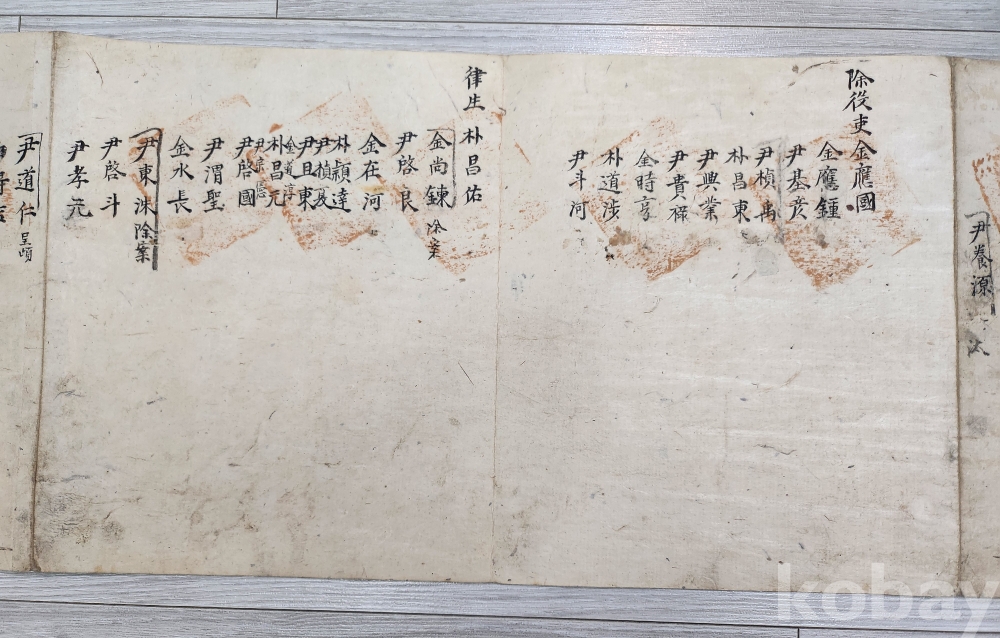 尹養源 汰
除役吏 金應國
金應鍾
尹基彦
尹楨禹
朴昌東
尹興業
尹貴
金時亨
朴道涉
尹斗河
律生 朴昌佑
金尚鍊 除案
尹啓良
金在河
朴頴達
尹楨夏
尹且東
金道淳
朴昌元
尹宗
尹啓國
尹渭聖
金永長
尹東洙 除案
尹啓斗
尹孝元
尹道仁 呈頉
kobay